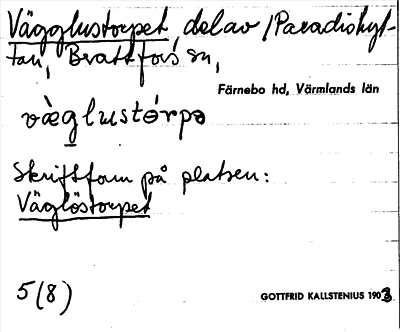 Vägglustorpet, del av /Paradishyt-
tan, Brattfors sn,
Färnebo hd, Värmlands län
væ̀glustórpə
Skriftform på platsen:
Väglöstorpet
5(8)
GOTTFRID KALLSTENIUS 1903